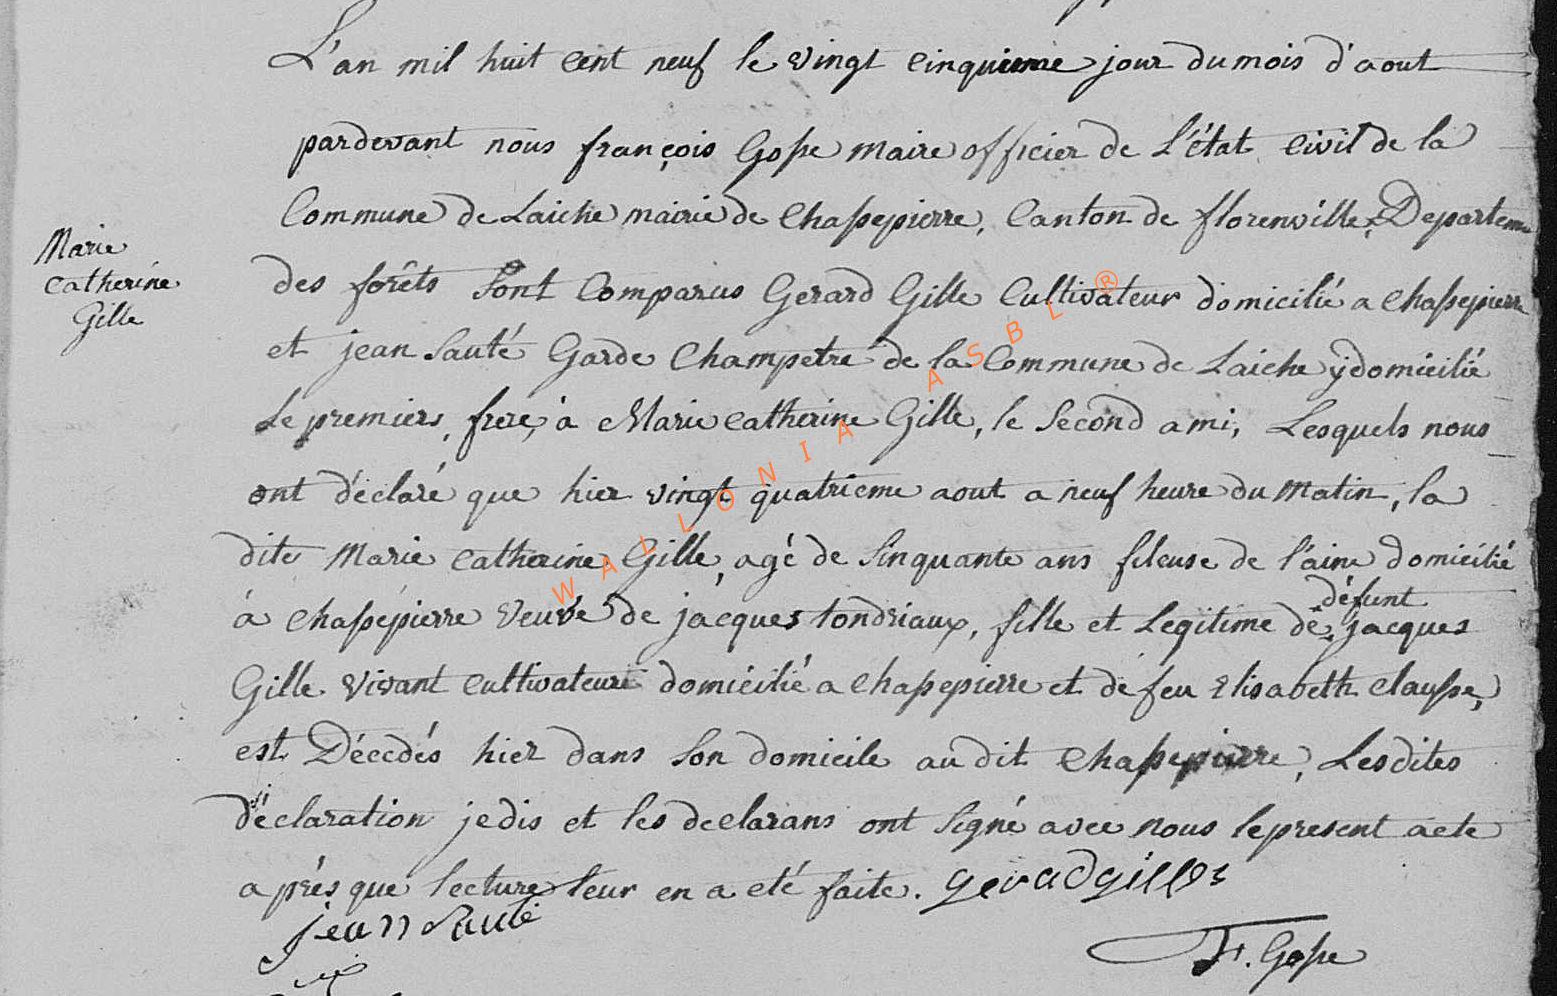 L'an mil huit cent neuf le vingt cinquieme jour du mois d'aout
pardevant nous françois Gosse maire officier de L'état civil de la
Commune de Laiche mairie de Chassepierre, Canton de florenville, Departem
des forêts Sont Comparus Gerard Gille Cultivateur domicilié a Chassepierre
Marie
Catherine
Gille
et jean Sauté Garde Champetre de la Commune de Laiche ÿ domicilié
Le premiers, frere, à Marie Catherine Gille, le Second ami, Lesquels nous
ont déclaré que hier vingt quatrieme aout a neuf heure du Matin, la
dite Marie Catherine Gille, agé de Sinquante ans fileuse de l'aine domicilié
à Chassepierre Veuve de jacques tondriaux, fille et Legitime de défunt jacques
Gille vivant Cultivateur domicilié a Chassepierre et de feu Elisabeth Clausse,
est Décedés hier dans Son domicile au dit Chassepierre, Les dites
déclaration jedis et les declarans ont Signé avec nous le present acte
après que lecture leur en a eté faite. gerad gilles
jean Sauté
F. Gosse
WALLONIA ASBL ®